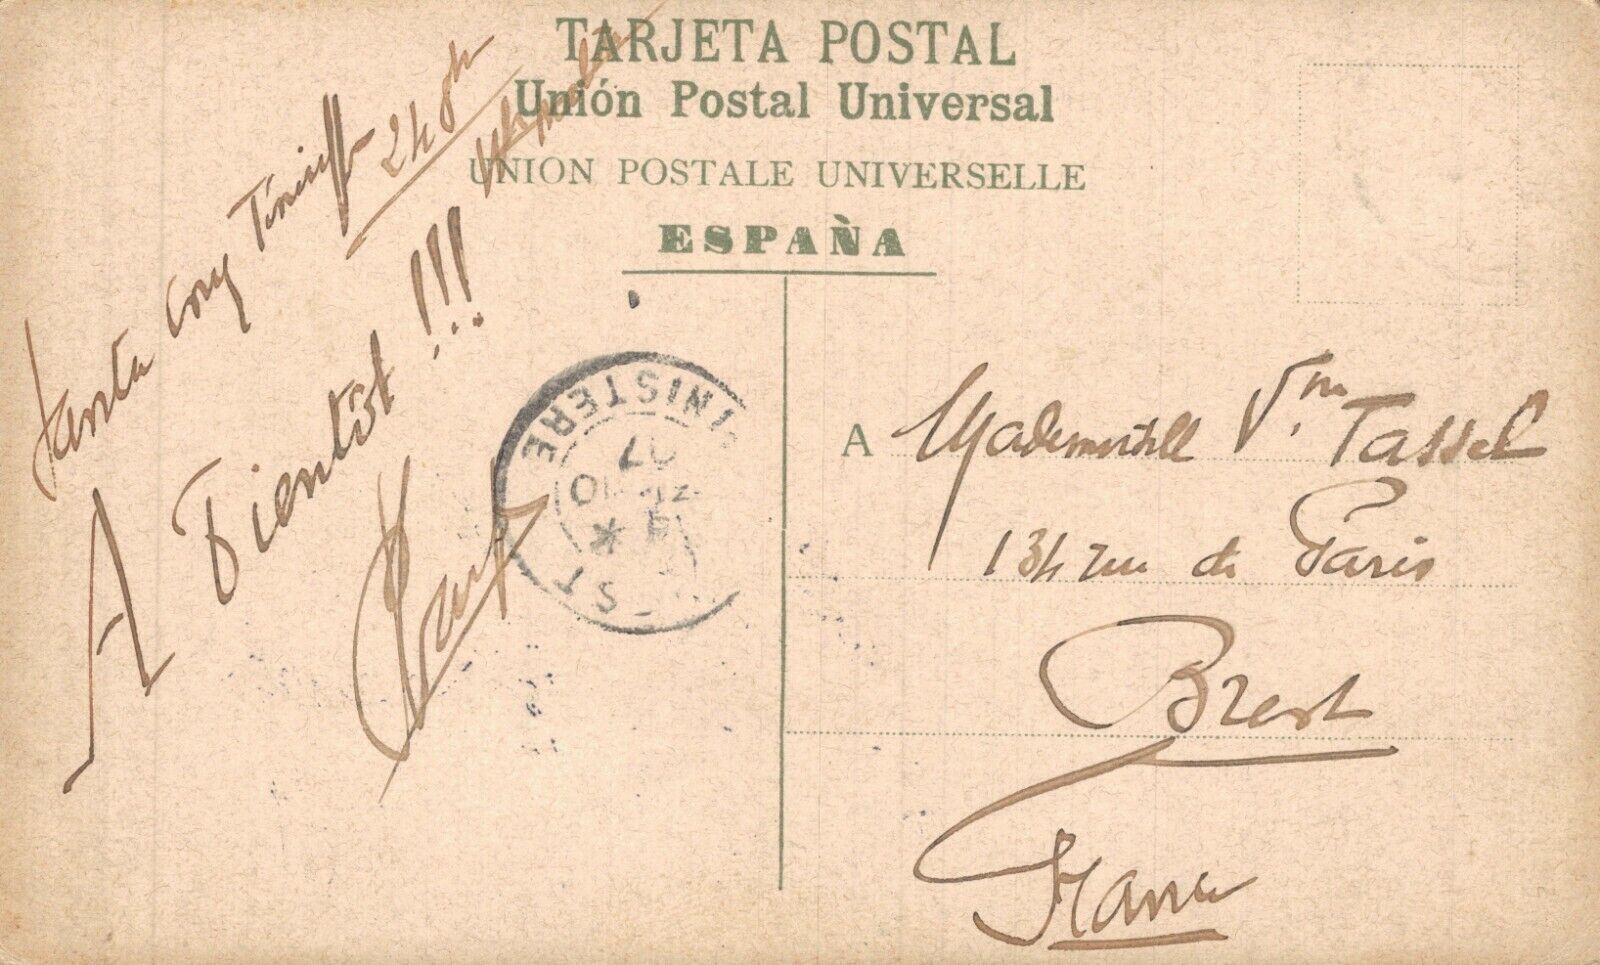 TARJETA POSTAL
Unión Postal Universal
UNION POSTALE UNIVERSELLE
ESPAÑA
Santa Cruz Ténériffe 24
A Bientôt !!!
INISTERE
10
07
ST
A Mademoiselle Tassel
134 rue de Paris
Brest
France